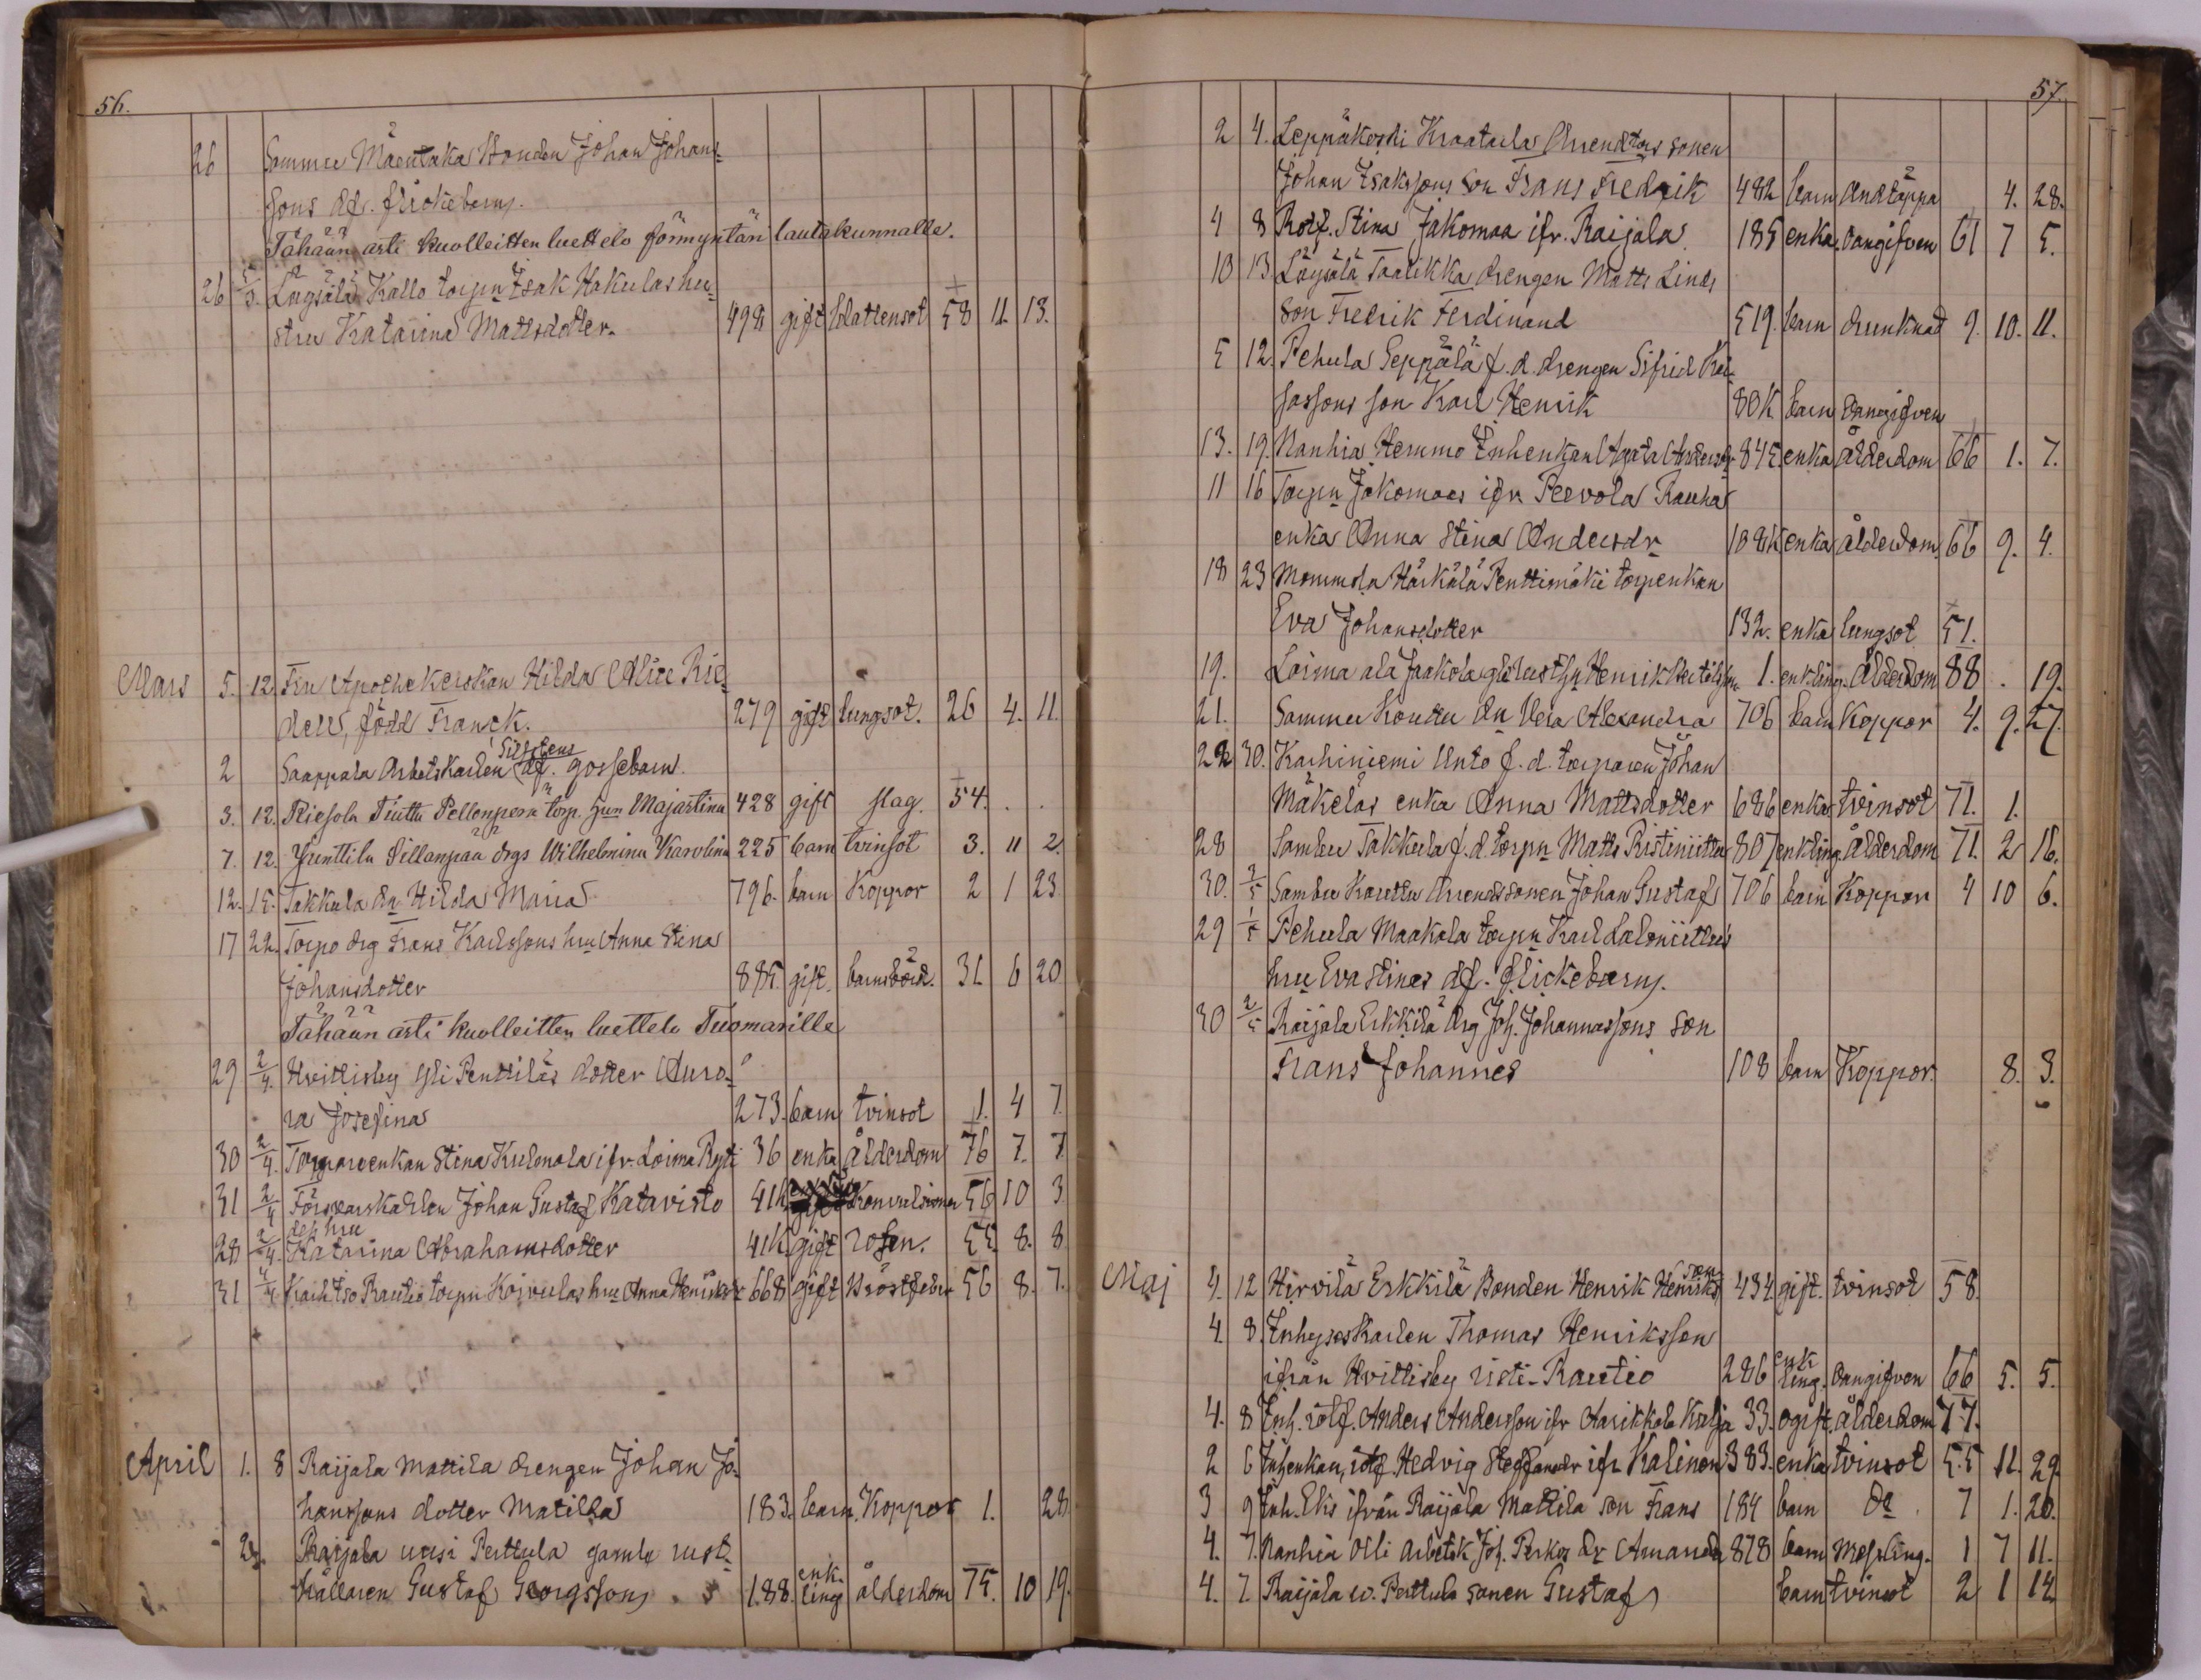 56.
26 Sammu Mäentaka Bonden Johan Johans-
sons df. flickebarn.
Tähään asti kuolleitten luettelo förmyntäri lautakunnalle.
26 5/3. Löysälä Kallo torpn Isak Hakulas hu-
stru Katarina Mattsdotter. 498 gift Wattensot 58 11. 13.
Mars 5. 12. Fru Apothekerskan Hilda Alice Rie-
dell, född Franck. 279 gift lungsot. 26 4. 11.
2 Saappala Arbetskarlen df. gossebarn.
3. 12. Riesola Tiuttu Pellonperä torp. hun Majastina 428 gift slag. 54. . .
7. 12. Junttila Sillanpää drgs Wilhelmina Karolina 225 barn tvinsot 3. 11 2.
12. 15. Takkula dr Hilda Maria 796. barn Koppor 2 1 23
17 22. Torpo drg Frans Karlssons hru Anna Stina
Johansdotter 885. gift. barnsbörd. 31 6 20
Tähään asti kuolleitten luettelo Tuomarille
29 2/4. Hvittisby Yli Penttiläs dotter Auro-
ra Josefina 273. barn tvinsot 1. 4 7.
30 2/4. Torpareenkan Stina Kulmala ifr. Loima Ryti 36 enka ålderdom 76 7. 7
31 2/4 Försvarskarlen Johan Gustaf Katavisto 41k Konvulsioner 56 10 3
28 2/4. des hru Katarina Abrahamsdotter 41k. gift rosen. 55. 8. 8
31 4/4 Karhiso Rautio torpn Koivulas hru Anna Henriksdr 668 gift Bröstfeber 56 8. 7.
April 1. 8 Raijala Mattila drengen Johan Jo-
hanssons dotter Matilda 183. barn. Koppor 1. 28
Raijala uusi Perttula gamla rust-
hållaren Gustaf Georgsson 188. enk-ling ålderdom 75. 10 19.
57.
2 4. Leppäkoski Kraatula Arendtors sonen
Johan Isakssons son Frans Fredrik 482 barn Andtäppa 4. 28.
4 8 Rotf. Stina Jakomaa ifr. Raijala 185 enka. Oangifven 61 7 5.
10 13 Löysälä Taatikka drengen Matts Linds
son Fredrik Ferdinand 519. barn drunknad 9. 10. 11.
5 12. Pehula Seppälä f. d. drengen Sifrid Kai-
sassons son Karl Henrik 80k barn Oangifven
13. 19. Nanhia Hemmo Inhenkan Agata Andersdr 845. enka ålderdom 66 1. 7.
11 16 Torpn Jakomaas ifr Peevola Rauha
enka Anna Stina Andersdr 108k enka ålderdom. 66 9. 4.
18 23 Mommola Härkälä Penttimäki torpenkan
Eva Johansdotter 132. enka lungsot 51.
19. Loima ala Jaakola gle rusth Henrik Bertilsson 1. enkling. ålderdom 88 . 19.
21. Sammu Kouttu dr Vera Alexandra 706 barn Koppor 4. 9. 27.
22 30. Karhiniemi Unto f. d. torparen Johan
Mäkeläs enka Anna Mattsdotter 686 enka tvinsot 71. 1.
28 Sambu Takkula f. d. torpn Matts Ristiniittu 807 enkling. ålderdom 71. 2 16.
30. 2/5 Sambu Kouttu Arendssonen Johan Gustaf 706 barn Koppor 4 10 6.
29 1/5 Pehula Maakala torpn Karl Laloniittus
hru Eva Stinas df. flickebarn.
30 2/5 Raijala Erkkilä drg Joh. Johannassons son
Frans Johannes 108 barn Koppor. 8. 3.
Maj 4. 12 Hirvilä Erkkilä Bonden Henrik Henriksson 434 gift. tvinsot 58.
4. 8. Inhyseskarlen Thomas Henriksson
ifrån Hvittisby risti-Rautio 286 enk-ling. Oangifven 66 5. 5.
4. 8 Inh. rotf. Anders Andersson ifr Anikkala Kulja 33. ogift. ålderdom 77.
2 6 Inhenkan, rotf. Hedvig Steffansdr ifr Kalinen 383. enka tvinsot 55 11. 29.
3 9 Inh. Elis ifrån Raijala Mattila son Frans 184 barn do 7 1. 20.
4. 7. Nanhia Olli Arbetsk Joh. Perkos dr Amanda 878 barn Messling. 1 7 11.
4. 7. Raijala u. Perttula sonen Gustaf barn tvinsot 2 1 14.